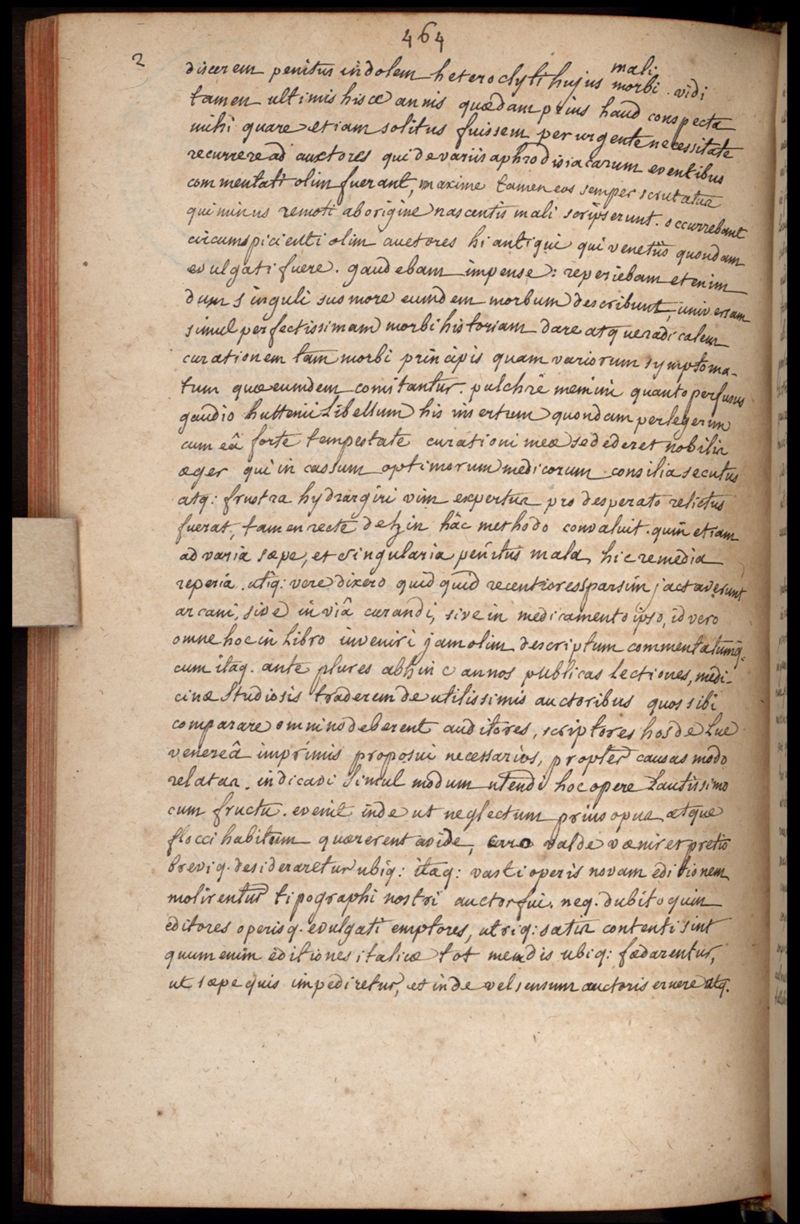 464
2
discerem penitus indolem heterocliti hujus mali morbi. vidi
tamen ultimis hisce annis quædam prius haud conspecta
mihi quare etiam solitus fuissem per urgente necessitate
recurrere ad auctores qui de variis aphrodisiacarum eventibus
commentati olim fuerant, maxime tamen eos semper scrutatus
qui minus remoti ab origine nascentis mali scripserunt. occurrebant
circumspicienti olim auctores hi antiqui qui venetiis quondam
evulgati fuere. gaudebam impense: reperiebam etenim
dum singuli suo more eumdem morbum describunt, universam
simul perfectissimam morbi historiam dare atque radicalem
curationem tam morbi principis quam variorum symptoma-
tum quæ eumdem comitantur. pulchrè memini quanto perfusus
gaudio huttenii Libellum his insertum quondam perlegerim
cum eâ forte tempestate curationi meæ se dederet nobilis
æger qui in cassum optimorum medicorum consilia secutus
atq: frustra hydrargiri vim expertus pro desperato relictus
fuerat, tamen recte dein hâc methodo convaluit. quin etiam
ad varia sæpe, et singularia penitus mala, hic remedia
reperia. utiq: vere dixero quid quid recentiores sparsim jactaverunt
arcani, sive in viâ curandi, sive in medicamento ipso, id vero
omne hoc in Libro inveniri jam olim descriptum commentatumq.
cum itaq. ante plures abhinc annos publicas lectiones, medi-
cinæ studiosis traderem de utilissimis auctoribus quos sibi
comparare omnino deberent auditores, scriptores hos de Lue
venereâ imprimis proposui necessarios, propter causas modo
relatas. indicavi simul modum utendi hoc opere Lautissimo
cum fructu. evenit inde ut neglectum prius opus, atque
flocci habitum quærerent avide, valde væniret pretio
breviq. desideraretur ubiq: itaq: vasti operis novam editionem
molirentur tipographi nostri auctor fui. neq. dubito quin
editores operisq. evulgati emptores, utriq: satis contenti sint
quum enim editiones italicæ tot mendis ubiq: fædarentur,
ut sæpe quis impediretur, et inde vel sensum auctoris eruere atq.